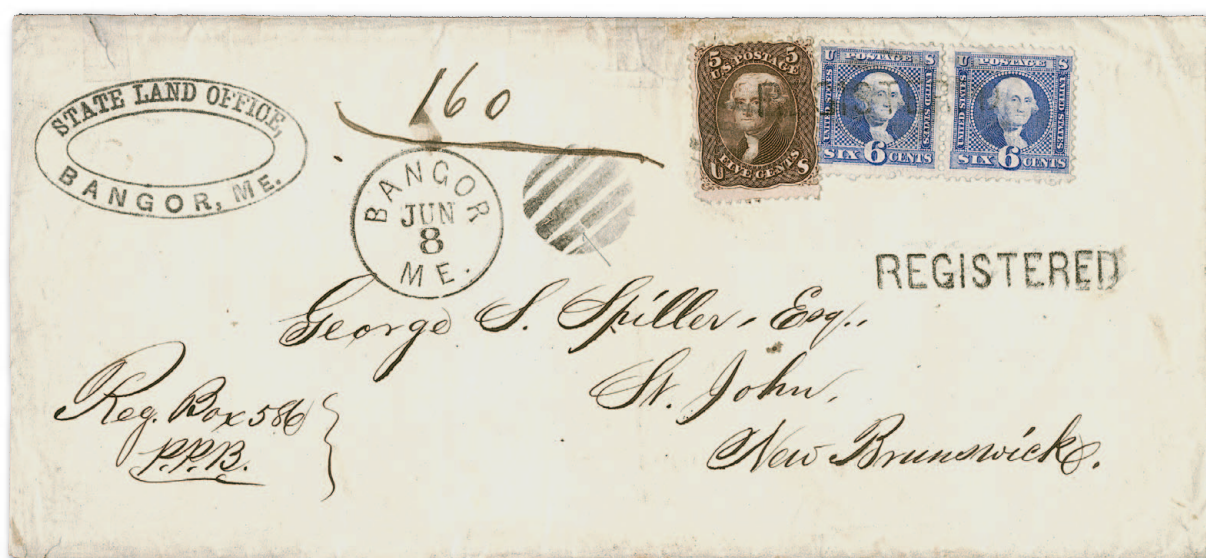 STATE LAND OFFICE,
BANGOR, ME.
160
BANGOR
JUN
8
ME.
5 5
U.S. POSTAGE
FIVE CENTS
U S
POSTAGE
UNITED STATES
UNITED STATES
SIX 6 CENTS
U S
POSTAGE
UNITED STATES
UNITED STATES
SIX 6 CENTS
REGISTERED
George S. Spiller, Esq.,
St. John,
New Brunswick.
Reg. Box 586
P.P.B.